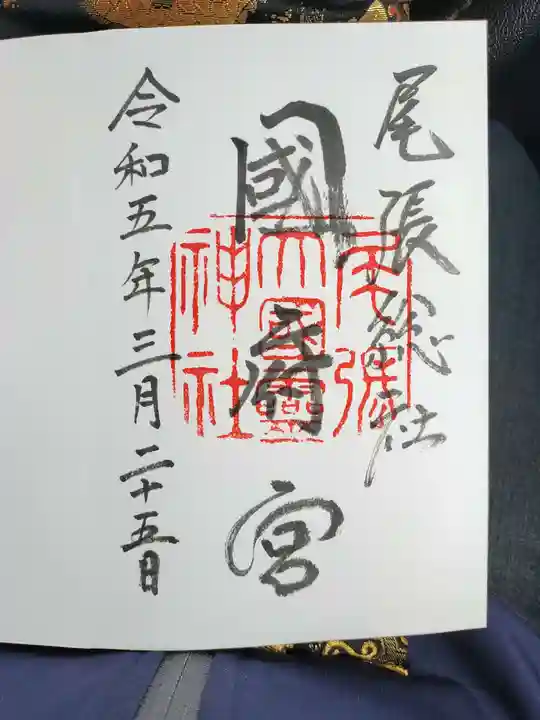 尾張総社
國府宮
令和五年三月二十五日
尾張
大國霊
神社